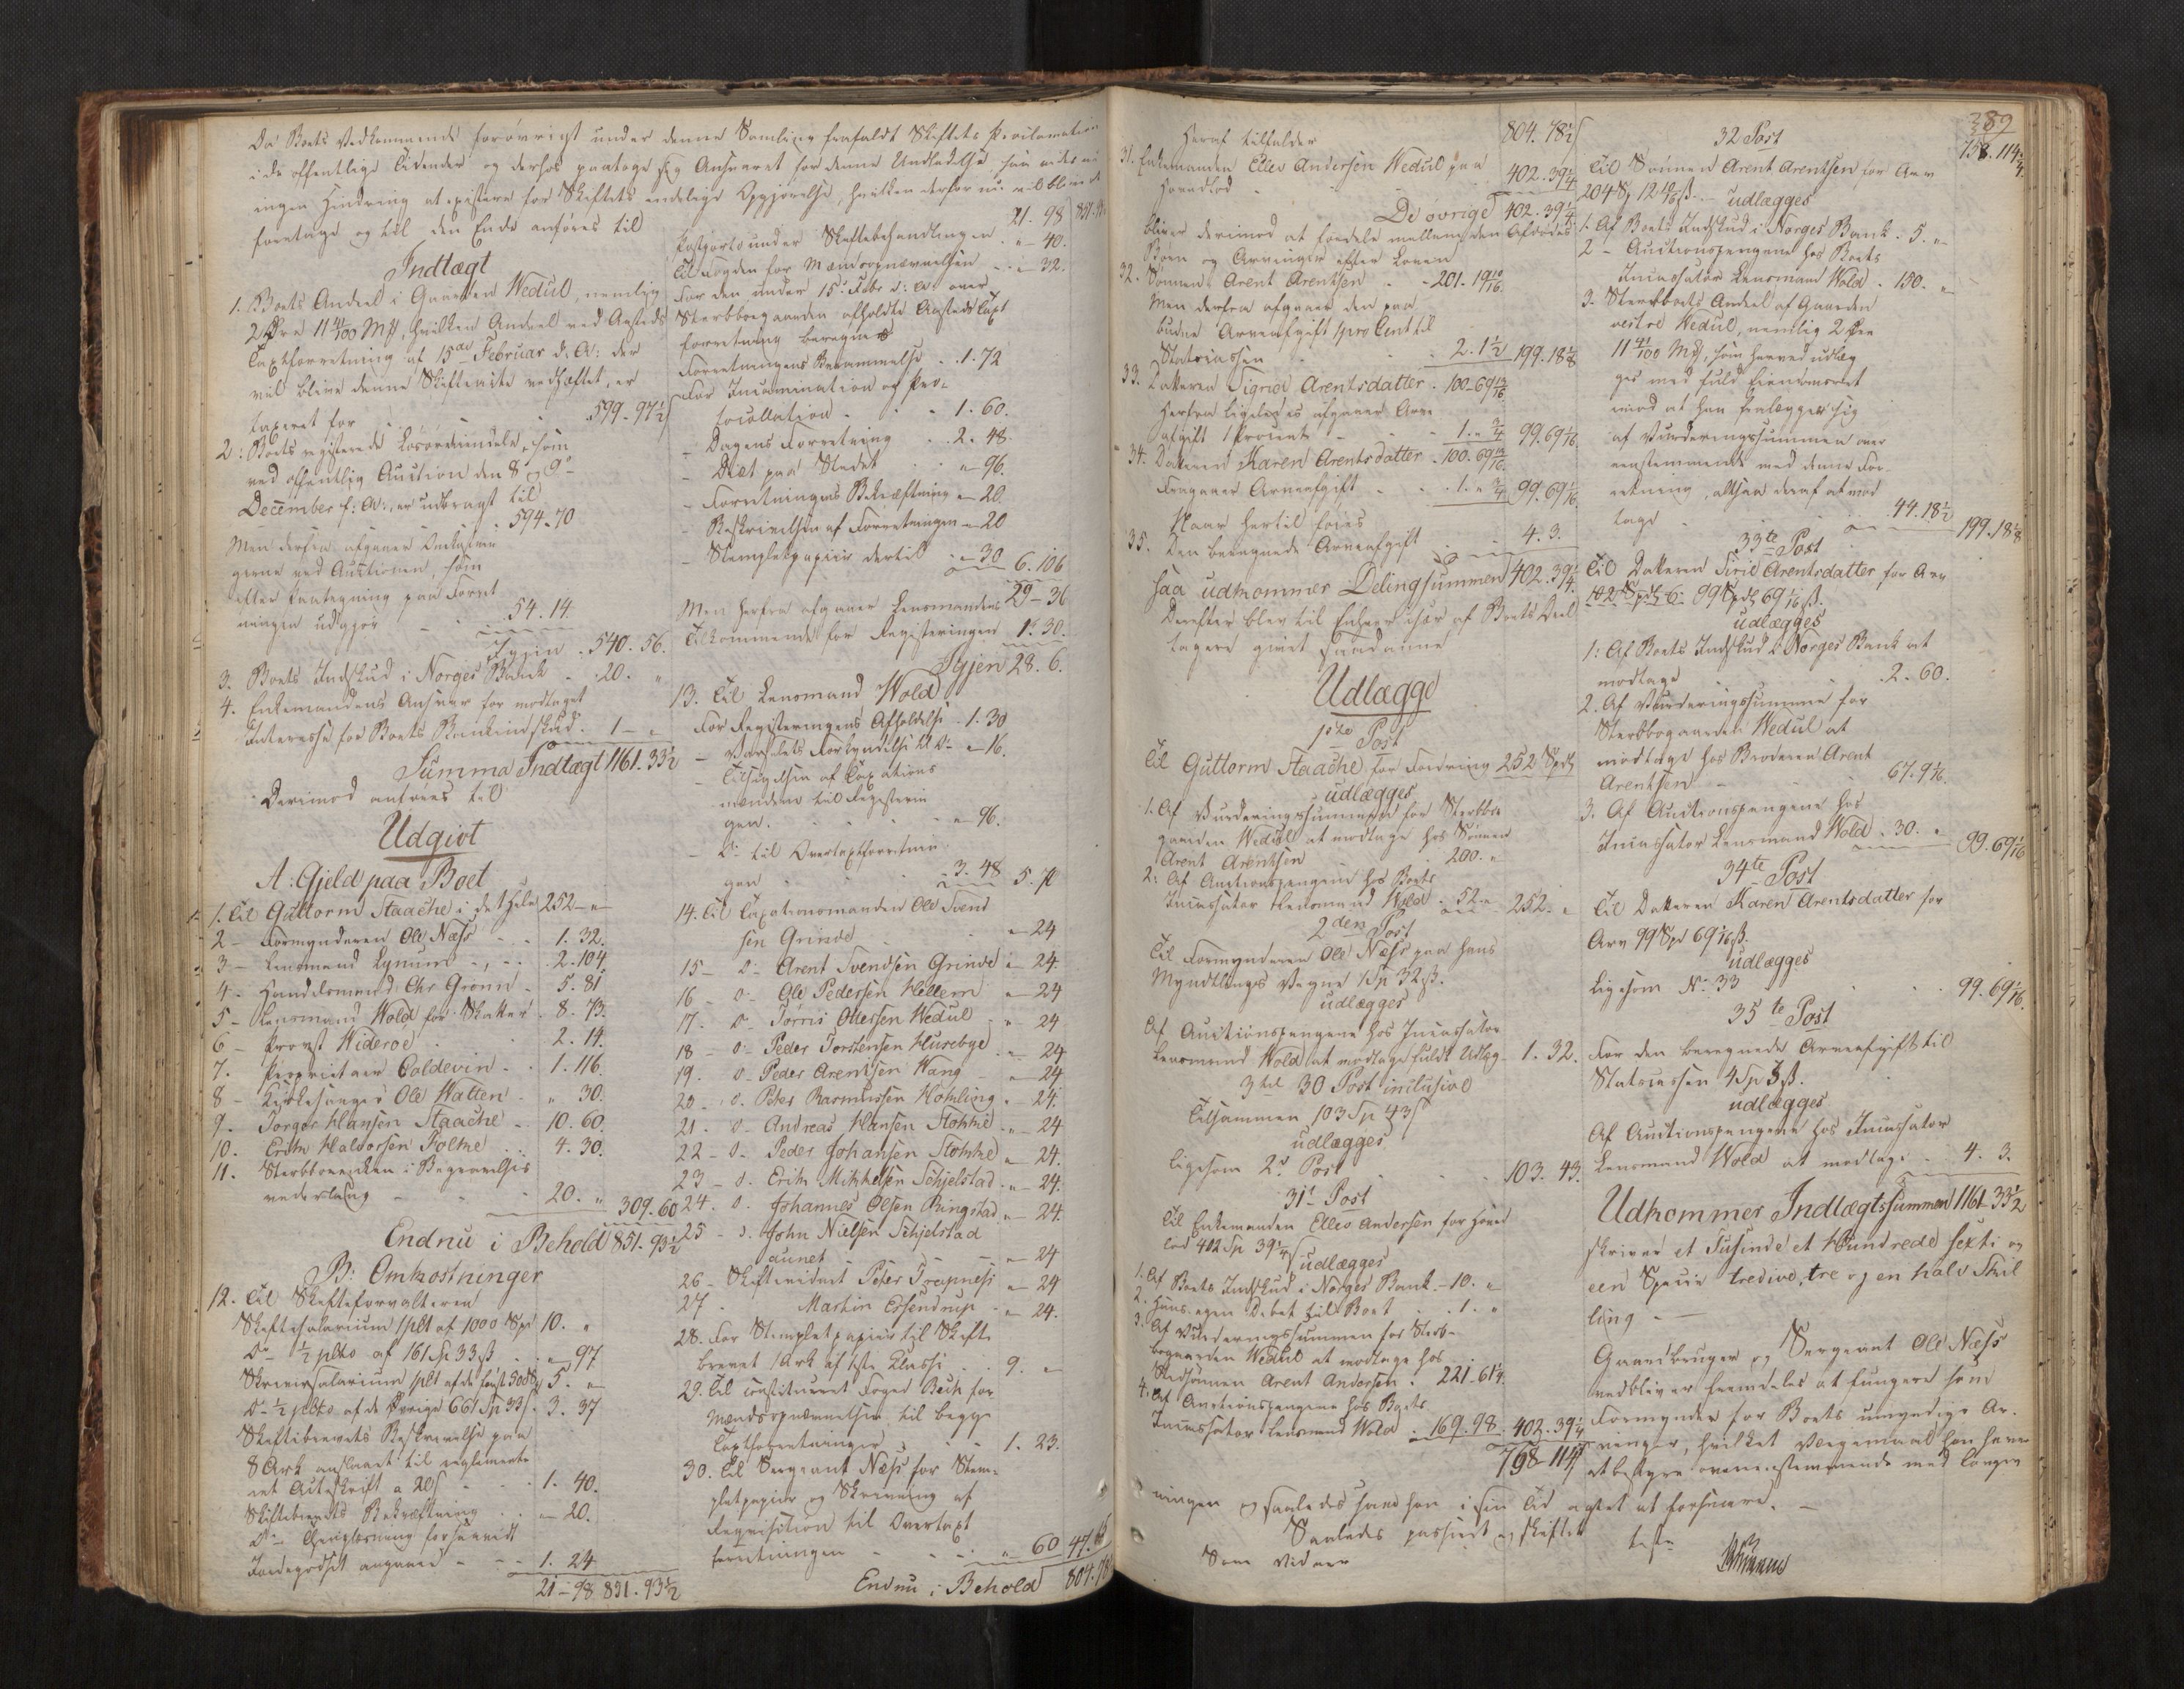 Da Boets Vedkommende forøvrigt under denne Samling frafaldt Skiftets Proclamation
i de offentlige Tidender og derhos paatoge sig Ansvaret for denne Undladelse, saa
ingen Hindring at existere for Skiftets endelige Opgjørelse, hvilken derfor nu vil blive
foretage og til den Ende anføres til
Indtægt
1. Boets Andeel i Gaarden Wedul, nemlig
2 Øre 11 4/100 Mk, hvilken Andeel ved Aasteds
Taxtforretning af 15de Februar d: A: der
vil blive denne Skifteacte vedhæftet, er
taxeret for 599-97½
2: Boets registerede Løsøreeiendele, som
ved offentlig Auction den 8 og 9de
December f: A:, er udbragt til
594.70
Men derfra afgaaer Omkostnin
gerne ved Auctionen, som
efter Paategning paa Forret
ningen udgjør 54.14.
Igjen 540.56.
3. Boets Indskud i Norges Bank 20. "
4. Enkemandens Ansvar for modtaget
Interesse for Boets Bankindskud 1 - "
Summa Indtægt 1161.33½
Derimod anføres til
Udgivt
A: Gjeld paa Boet
1. Til Guttorm Staache i det Hele 252 - "
2 - Formynderen Ole Næss 1. 32.
3 - Lensmand Lynum 2.104
4 - Handelsmand Chr Grønn 5.81
5 - Lensmand Wold for Skatter 8.73.
6 - Provst Widerøe 2.14.
7. Proprietair Coldevin 1.116.
8 - Kirkesanger Ole Watten " 30.
9. Torger Hansen Staache 10.60.
10. Erik Haldorsen Tolme 4.30.
11. Sterbboenken i Begravelses
vederlag 20. " 309.60
Endnu i Behold 851.93½
B: Omkostninger
12. Til Skifteforvalteren
Skiftesalarium 1 pCt af 1000 Spd 10. "
Do ½ pCto af 161 Sp 33 ß " 97
Skriversalarium 1 pCt af de første 500 Sp 5. "
Do ½ pCto af de Øvrige 661 Sp 33 ß 3. 37
Skiftebrevets Beskrivelse paa
8 Ark anslaaet til reglemente
ret Acteskrift a 20 ß 1. 40.
Skiftebrevets Bekræftning " 20.
Do Thinglæsning forsaavidt
Jordegodset angaaer 1. 24
21 - 98 851.93½
21. 98 851.93½
Postporto under Skiftebehandlingen " 40.
Til Fogden for Mændsopnævnelsen " 32.
For den under 15de Febr d: A: over
Sterbboegaarden afholdte Aasteds Taxt
forretning beregnes
Forretningens Berammelse 1.72
For Incamination og Pro-
tocollation 1.60.
- Dagens Forretning 2.48.
- Diæt paa Stedet " 96.
- Forretningens Bekræftning " 20.
- Beskrivelsen af Forretningen " 20
- Stempletpapiir dertil " 30 6.106
29 - 36
Men herfra afgaaer Lensmandens
Tilkommende for Registeringen 1. 30.
Igjen 28.6.
13. Til Lensmand Wold
For Registeringens Afholdelse 1.30
- Varselets Forkyndelse til Do " 16.
- Tilsigelsen af Taxations
mændene til Registerin
gen. " 96.
- Do til Overtaxtforretnin
gen 3.48 5.70
14. Til Taxationsmanden Ole Svend
sen Grinde " 24
15 - Do Arent Svendsen Grinde " 24.
16 - Do Ole Pedersen Hellem " 24
17. Do Torris Ottersen Wedul " 24
18 - Do Peder Torstensen Husebye " 24
19. Do Peder Arentsen Wang " 24
20 - Do Peter Rasmussen Holmling " 24.
21. Do Andreas Hansen Stokke " 24
22 - Do Peder Johansen Stokke " 24.
23 - Do Erik Mikkelsen Schjelstad " 24.
24. Do Johannes Olsen Ringstad " 24.
25 - Do John Nielsen Schjelstad
aunet " 24
26 - Skiftevidnet Peter Trapness " 24
27 - Martin Essendrup " 24.
28. For Stempletpapiir til Skifte
brevet 1 Ark af 1ste Klasse 9. "
29. Til constitueret Foged Bech for
Mændsopnævnelsen til begge
Taxtforretninger 1. 23.
30. Til Sergeant Næss for Stem-
pletpapiir og Skrivning af
Requisition til Overtaxt
forretningen " 60 47.15
Endnu i Behold 804.78½
389
804.78½
Heraf tilfalder
31. Enkemanden Ellev Andersen Wedul paa
Hovedlod 402.39¼
De øvrige 402.39¼
bliver derimod at fordele mellem den Afdødes
Børn og Arvinger efter Loven
32. Sønnen Arent Arentsen 201.19 10/16
Men derfra afgaaer den paa
budne Arveafgift 1 pro Cent til
Statscassen 2.1½ 199.18⅛
33. Datteren Sigrid Arentsdatter 100-69 13/16
Herfra ligeledes afgaaer Arve
afgift 1 Procent 1. " ¾ 99.69 1/16
34. Datteren Karen Arentsdatter 100.69 13/16
Fragaaer Arveafgift 1. " ¾ 99.69 1/16
Naar hertil føies
35. Den beregnede Arveafgift 4.3.
saa udkommer Delingsummen 402.39¼
Derefter blev til Enhver især af Boets Deel
tagere givet saadanne
Udlægge
1ste Post
Til Guttorm Staache for Fordring 252 Spd
udlægges
1. Af Vurderingssummen for Sterbboe
gaarden Wedul at modtage hos Sønnen
Arent Arentsen 200. "
2: Af Auctionspengene hos Boets
Incassator Lensmand Wold 52. " 252. "
2den Post
Til Formynderen Ole Næss paa hans
Myndtlings Vegne 1 Sp 32 ß.
udlægges
Af Auctionspengene hos Incassator
Lensmand Wold at modtage fuldt Udlæg 1. 32.
3 til 30 Post inclusive
Tilsammen 103 Sp 43 ß
udlægges
ligesom 2den Post 103.43.
31te Post
Til Enkemanden Ellev Andersen for Hoved
lod 402 Sp 39¼ ß udlægges
1. Af Boets Indskud i Norges Bank 10. "
2. Hans egen Debet til Boet 1. "
3. Af Vurderingssummen for Sterb-
bogaarden Wedul at modtage hos
Stedsønnen Arent Andersen 221-61¼.
4. Af Auctionspengene hos Boets
Incassator Lensmand Wold 169.98. 402.39¼
758-114¼
32 Post
758.114¼
Til Sønnen Arent Arentsen for Arv
204 Sp 12 1/16 ß. udlægges
1. Af Boets Indskud i Norges Bank 5. "
2 - Auctionspengene hos Boets
Incassator Lensmand Wold 150. "
3. Sterbboets Andeel af Gaarden
vestre Wedul, nemlig 2 Øre
11 41/100 Mk, som herved udlæg
ges med fuld Eiendomsret
imod at han fralægger sig
af Vurderingssummen over
eensstemmende med denne For-
retning, altsaa deraf at mod
tage 44.18½ 199.18⅛
33te Post
Til Datteren Siri Arentsdatter for Arv
99 Spd 69 1/16 ß.
udlægges
1: Af Boets Indskud i Norges Bank at
modtage 2.60.
2. Af Vurderingssummen for
Sterbbogaarden Wedul at
modtage hos Broderen Arent
Arentsen 67.9 1/16.
3. Af Auctionspengene hos
Incassator Lensmand Wold 30. " 99.69 1/16
34te Post
Til Datteren Karen Arentsdatter for
Arv 99 Spd 69 1/16 ß.
udlægges
ligesom No 33 99.69 1/16.
35te Post
For den beregnede Arveafgift til
Statscassen 4 Sp 3 ß.
udlægges
Af Auctionspengene hos Incassator
Lensmand Wold at modtage 4. 3.
Udkommer Indlægtssummen 1161-33½
skriver et Tusinde et Hundrede sexti og
een Specie tredive, tre og en halv Skil
ling
Gaardbruger og Sergeant Ole Næss
vedbliver fremdeles at fungere som
Formynder for Boets umyndige Ar-
vinger, hvilket Værgemaal han haver
at bestyre overeensstemmende med Lovgiv
ningen og saaledes som han i sin Tid agter at forsvare.
Saaledes passeret og skiftet
teste